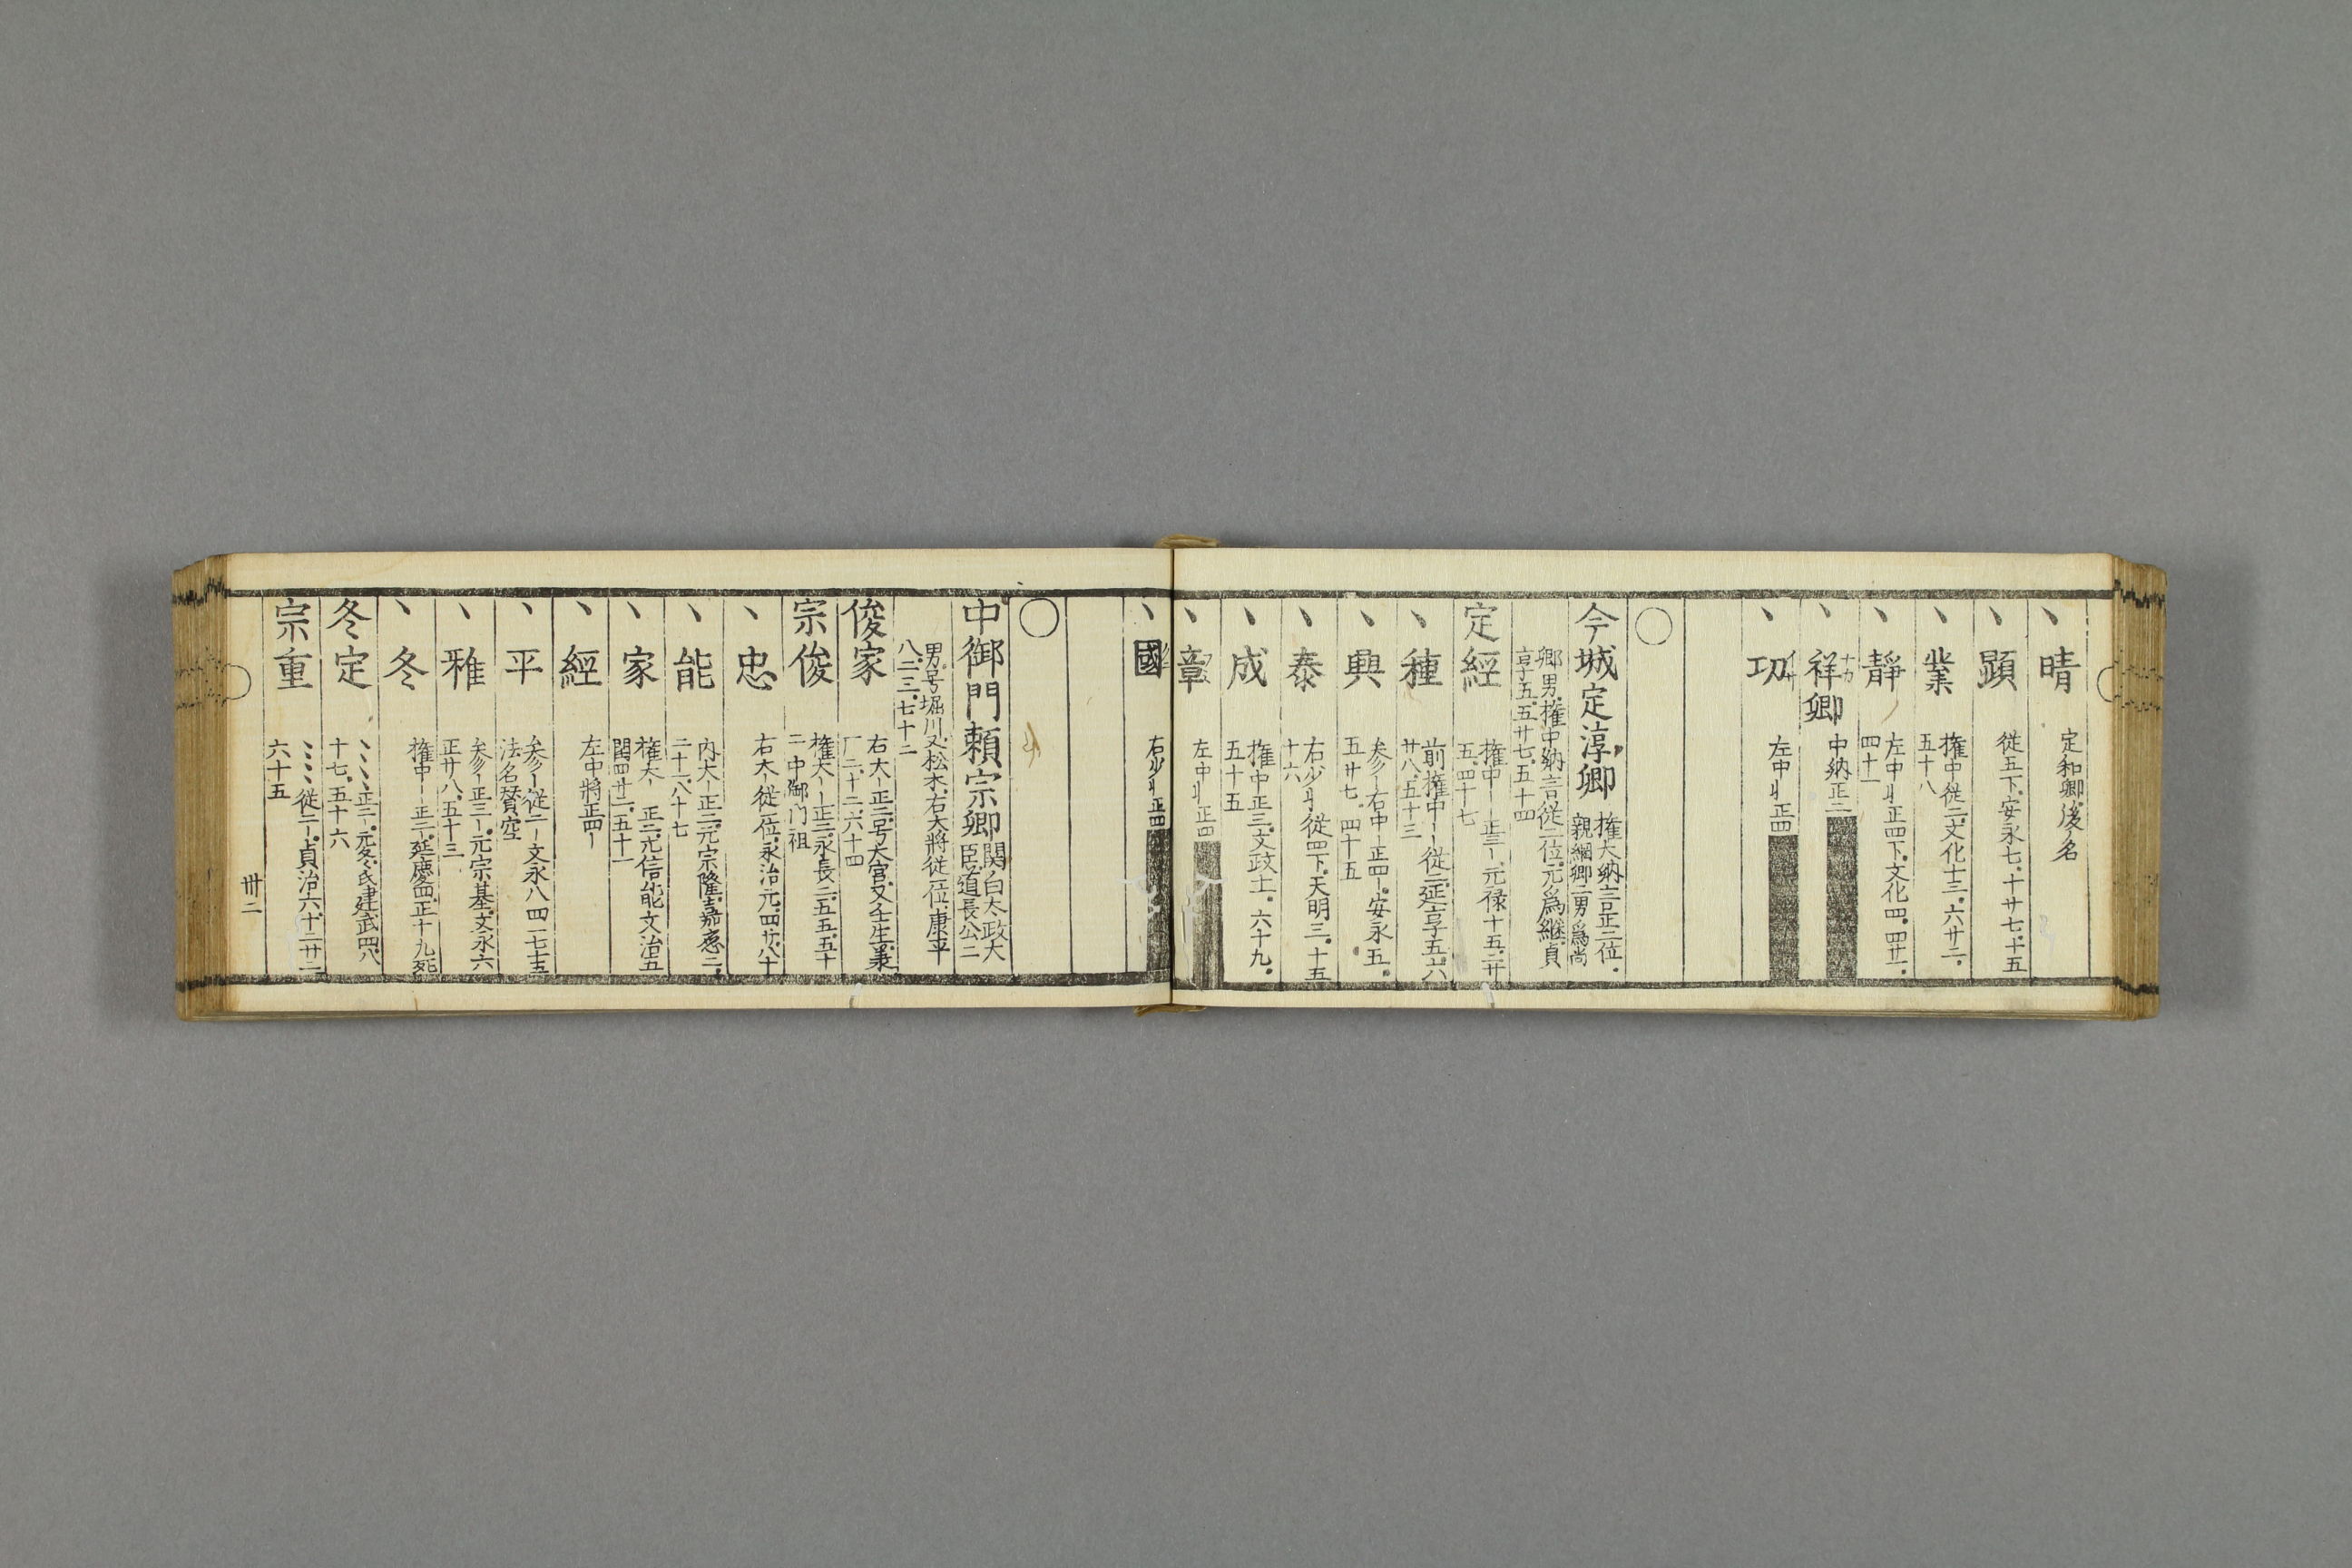 丶晴 定和卿、後名
丶顕 從五下、安永七、十廿七、十五
丶業 権中從二、文化十三、六廿二、
五十八
丶靜 左中丬正四下、文化四、四廿一、
四十一
丶祥卿 中納正二
丶功 左中丬正四
〇
今城定淳卿 権大納言正二位、
親綱卿二男爲尚
卿男、権中納言從二位、元爲継、貞
享五、五廿七、五十四
定經 権中丨正三丨、元禄十五、二廿
五、四十七
丶種 前権中丨丨從二、延享五、六
廿八、五十三
丶興 参丨右中丨正四丨、安永五、
五廿七、四十五
丶泰 右少丬從四下、天明三、十五
十六
丶成 権中正三、文政十一、六十九、
五十五
丶章 左中丬正四
丶國 右少丬正四
〇
中御門頼宗卿 関白太政大
臣道長公二
男、号堀川又松木、右大將從一位、康平
八、二三、七十二
俊家 右大丨正二、号大宮、又壬生、美
二、十二、六十四
宗俊 権大丨丨正二、永長二、五五、五十
二、中御门祖
丶忠 右大丨從一位、永治元、四廿、八十
丶能 内大丨正二、元宗隆、嘉應二、
二十一、八十七
丶家 権大丨 正二、元信能、文治五
閏四廿二、五十一
丶經 左中將正四丨
丶平 参丨從二丨文永八四一七十五
法名賛空
丶雅 参丨正三丨、元宗基、文永六
正廿八、五十三
丶冬 権中丨丨正二、延慶四、正十九死
冬定 丶丶丶丶正二丨、元冬氏、建武四、八
十七、五十六
宗重 丶丶丶丶從二丨、貞治六、十二廿二
六十五
卅二